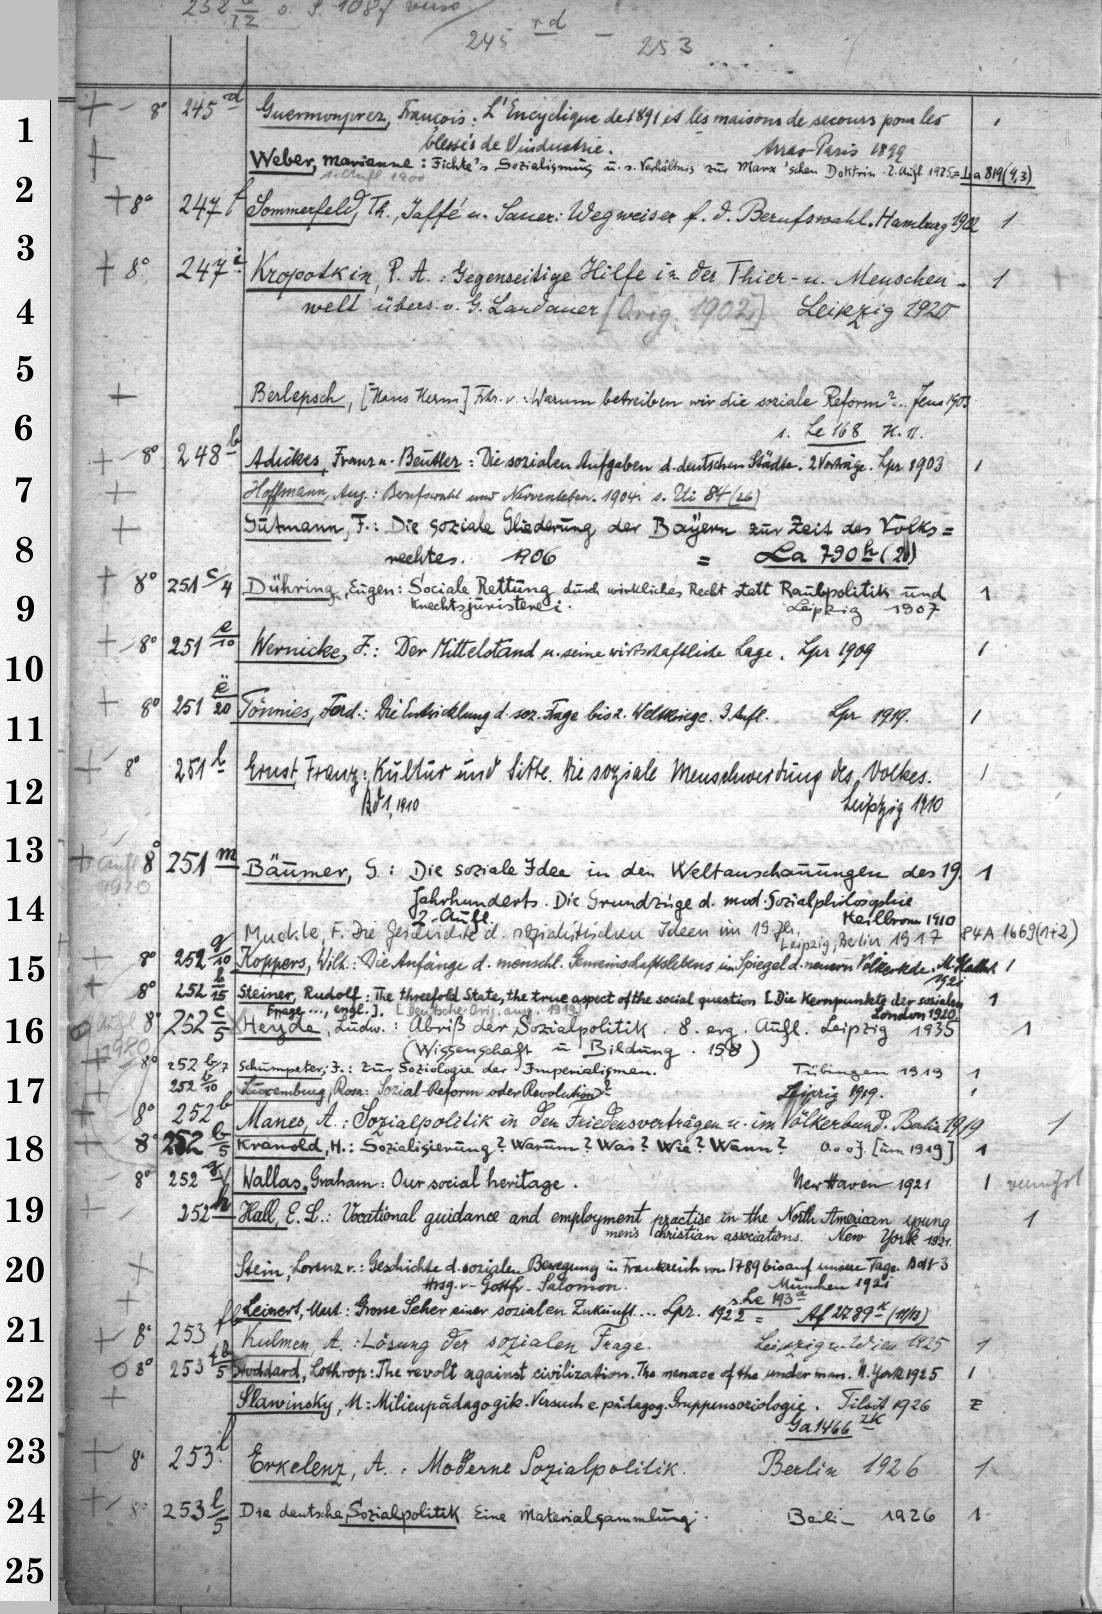 252 a/12 o. S. 108f verso
245 rd - 253
+ - 8° 245 d Guermonprez, François: L'Encyclique de 1891 et les maisons de secours pour les 1
1
+ blessés de l'industrie. Arras-Paris 1899
Weber, Marianne: Fichte's Sozialismus u. s. Verhältnis zur Marx'schen Doktrin. 2. Aufl 1925 = La 819(4,3)
1. Aufl. 1900
2
+ 8° 247 f Sommerfeld, Th., Jaffé u. Sauer: Wegweiser f. d. Berufswahl. Hamburg 1902 1
3
+ 8° 247 i Kropotkin, P. A.: Gegenseitige Hilfe in der Thier- u. Menschen- 1
4
welt übers. v. G. Landauer [Orig. 1902] Leipzig 1920
5
+ Berlepsch, [Hans Herm] Frhr. v.: Warum betreiben wir die soziale Reform? Jena 1903
6
s. Le 168 H. 11.
+ 8° 248 b Adickes, Franz u. Beutler: Die sozialen Aufgaben d. deutschen Städte. 2 Vorträge. Lpz 1903 1
7
+ Hoffmann, Aug.: Berufswahl und Nervenleben. 1904. s. Ui 84 (26)
+ Gutmann, F.: Die soziale Gliederung der Bayern zur Zeit des Volks=
8
rechtes. 1906 = La 790 h (20)
+ 8° 251 c/4 Dühring, Eugen: Sociale Rettung durch wirkliches Recht statt Raubpolitik und 1
9
Knechtsjuristerei. Leipzig 1907
+ 8° 251 e/10 Wernicke, J.: Der Mittelstand u. seine wirtschaftliche Lage. Lpz 1909 1
10
+ 8° 251 ë/20 Tönnies, Ferd.: Die Entwicklung d. soz. Frage bis z. Weltkriege. 3. Aufl. Lpz 1919. 1
11
+ 8° 251 l Ernst, Franz: Kultur und Sitte. Die soziale Menschwerdung des Volkes. 1
12
Bd 1, 1910 Leipzig 1910
13
+ Aufl 8° 251 m Bäumer, G.: Die soziale Idee in den Weltanschauungen des 19. 1
1910
14
Jahrhunderts. Die Grundzüge d. mod. Sozialphilosophie
2. Aufl. Heilbronn 1910
Muckle, F. Die Geschichte d. sozialistischen Ideen im 19. Jh. Leipzig, Berlin 1917 84 A 1669(1+2)
15
- 8° 252 a/10 Koppers, Wilh.: Die Anfänge d. menschl. Gemeinschaftslebens im Spiegel d. neuern Völkerkde. M. Gladb. 1
1921
8° 252 b/15 Steiner, Rudolf: The threefold State, the true aspect of the social question [Die Kernpunkte der sozialen 1
Frage..., engl.]. [Deutsche Orig. ausg. 1919] London 1920
16
8° 252 c/5 Heyde, Ludw.: Abriß der Sozialpolitik. 8. erg. Aufl. Leipzig 1935 1
1980 (Wissenschaft u. Bildung. 158)
+ 8° 252 b/7 Schumpeter, J.: Zur Soziologie der Imperialismen. Tübingen 1919 1
17
252 b/10 Luxemburg, Rosa: Sozial-Reform oder Revolution? Leipzig 1919. 1
+ 8° 252 b Manes, A.: Sozialpolitik in den Friedensverträgen u. im Völkerbund. Berlin 1919 1
18
+ 8° 252 b/5 Kranold, H.: Sozialisierung? Warum? Was? Wie? Wann? O. o. J. [um 1919] 1
8° 252 Wallas, Graham: Our social heritage. New Haven 1921 1 vermißt
19
252 h Hall, E. L.: Vocational guidance and employment practise in the North American young 1
men's christian associations. New York 1921.
20
+ Stein, Lorenz v.: Geschichte d. sozialen Bewegung in Frankreich von 1789 bis auf unsere Tage. Bd 1-3
Hrsg. v. Gottfr. Salomon. München 1921
s. Le 193 a
+ Leinert, Mart.: Grosse Seher einer sozialen Zukunft... Lpz. 1922 = Af 2789 r (11/13)
21
+ 8° 253 fb Kulmen, A.: Lösung der sozialen Frage. Leipzig u. Wien 1925 1
O 8° 253 fb/5 Stoddard, Lothrop: The revolt against civilization. The menace of the under man. N. York 1925 1
22
+ Slawinsky, M: Milieupädagogik. Versuch e. pädagog. Gruppensoziologie. Tilsit 1926 z
Ga 1466 zk
23
+ 8° 253 l Erkelenz, A.: Moderne Sozialpolitik. Berlin 1926 1
24
+ 8° 253 l/5 Die deutsche Sozialpolitik. Eine Materialsammlung. Berlin 1926 1
25